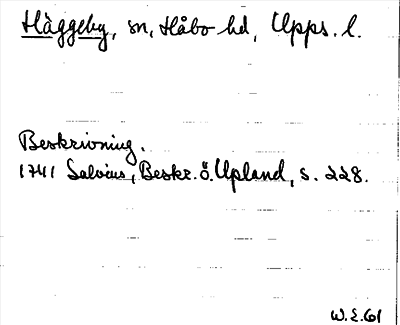 Häggeby, sn, Håbo hd, Upps. l.
Beskrivning.
1741 Salvius, Beskr. ö. Upland, s. 228.
W.E. 61